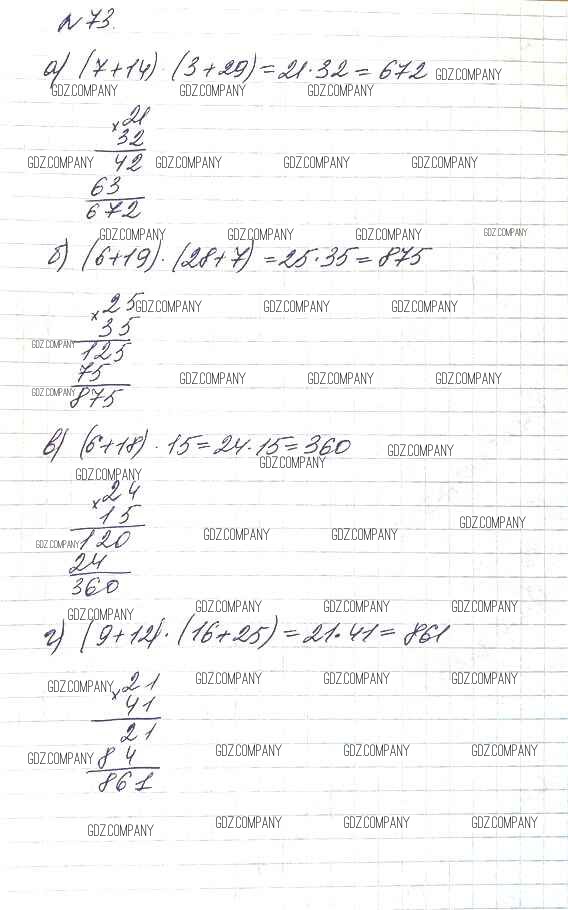 № 73.
а) (7+14) · (3+29) = 21·32 = 672 GDZ.COMPANY
GDZ.COMPANY GDZ.COMPANY GDZ.COMPANY
× 21
32
GDZ.COMPANY 42 GDZ.COMPANY GDZ.COMPANY GDZ.COMPANY
63
672
GDZ.COMPANY GDZ.COMPANY GDZ.COMPANY GDZ.COMPANY
б) (6+19) · (28+7) = 25·35 = 875
× 25 GDZ.COMPANY GDZ.COMPANY GDZ.COMPANY
35
GDZ.COMPANY 125
75 GDZ.COMPANY GDZ.COMPANY GDZ.COMPANY
GDZ.COMPANY 875
в) (6+18) · 15 = 24·15 = 360 GDZ.COMPANY
GDZ.COMPANY GDZ.COMPANY
× 24
15 GDZ.COMPANY
GDZ.COMPANY 120 GDZ.COMPANY GDZ.COMPANY
24
360
GDZ.COMPANY GDZ.COMPANY GDZ.COMPANY GDZ.COMPANY
г) (9+12) · (16+25) = 21·41 = 861
GDZ.COMPANY × 21 GDZ.COMPANY GDZ.COMPANY GDZ.COMPANY
41
21
GDZ.COMPANY 84 GDZ.COMPANY GDZ.COMPANY GDZ.COMPANY
861
GDZ.COMPANY GDZ.COMPANY GDZ.COMPANY GDZ.COMPANY